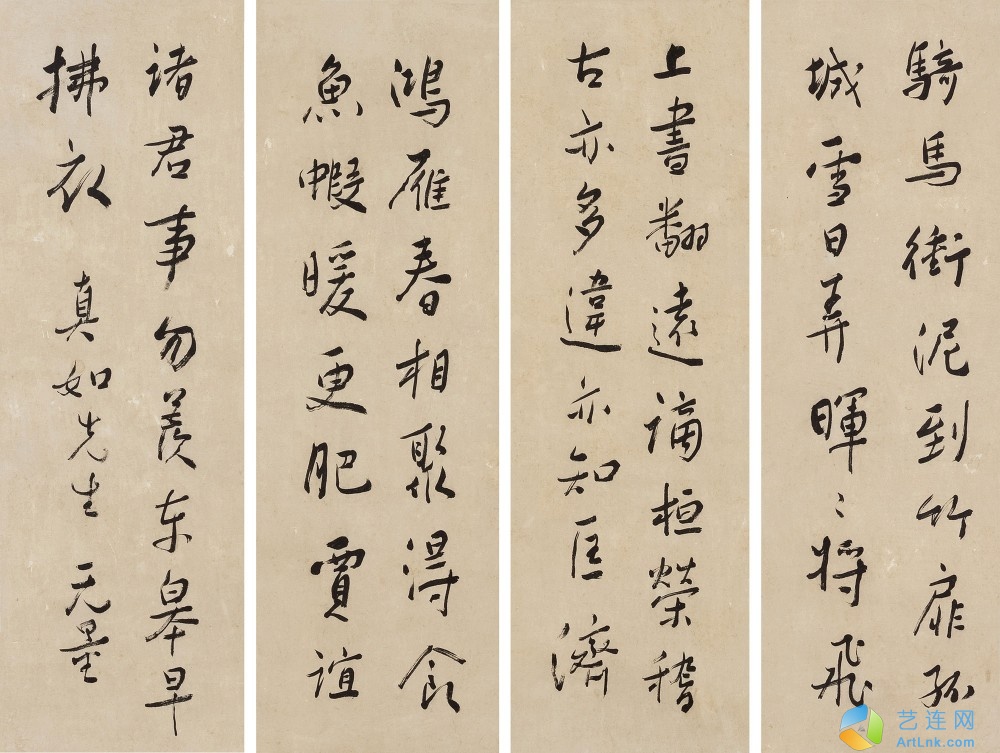 騎馬衝泥到竹扉孤
城雪日弄暉〻將飛
上書翻遠謫桓榮稽
古亦多違亦知匡濟
鴻雁春相聚得食
魚蝦暖更肥賈誼
諸君事勿羨东皋早
拂衣 真如先生 无量
艺连网
ArtLnk.com